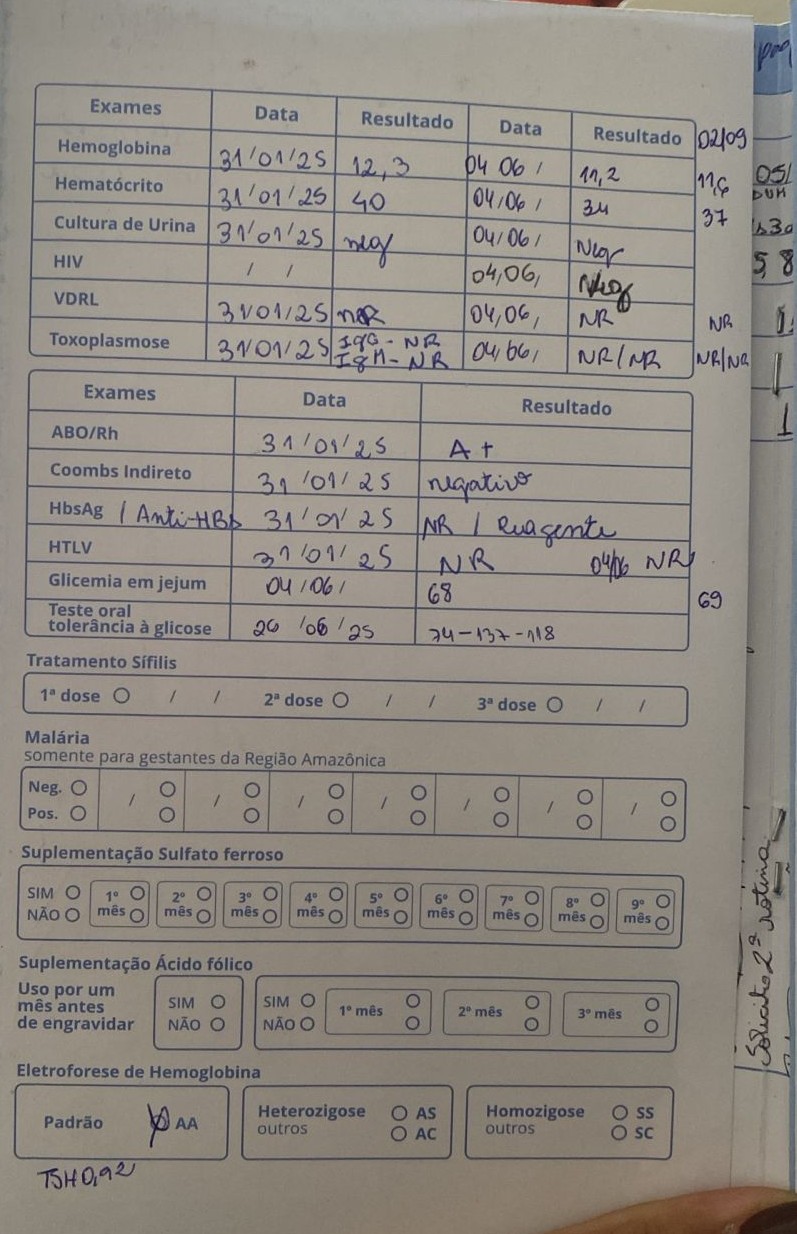 Exames Data Resultado Data Resultado 02/09
Hemoglobina 31/01/25 12,3 04 06 / 11,2 11,6
Hematócrito 31/01/25 40 04/06/ 34 37
Cultura de Urina 31/01/25 neg 04/06/ Neg
HIV / / 04,06, Neg
VDRL 31/01/25 NR 04,06, NR NR
Toxoplasmose 31/01/25 IgG - NR 04/06/ NR/NR NR/NR
IgM - NR
Exames Data Resultado
ABO/Rh 31/01/25 A+
Coombs Indireto 31/01/25 negativo
HbsAg / Anti-HBs 31/01/25 NR / Reagente
HTLV 31/01/25 NR 04/06 NR
Glicemia em jejum 04/06/ 68 69
Teste oral
tolerância à glicose 26/06/25 74-137-118
Tratamento Sífilis
1ª dose / / 2ª dose / / 3ª dose / /
Malária
somente para gestantes da Região Amazônica
Neg. / / / / / / /
Pos.
Suplementação Sulfato ferroso
SIM 1º 2º 3º 4º 5º 6º 7º 8º 9º
NÃO mês mês mês mês mês mês mês mês mês
Suplementação Ácido fólico
Uso por um
mês antes
de engravidar
SIM
NÃO
SIM
NÃO
1º mês 2º mês 3º mês
Eletroforese de Hemoglobina
Padrão AA
Heterozigose AS
outros AC
Homozigose SS
outros SC
TSH 0,92
05/
DUM
5,8
1
1
Solicito 2ª rotina